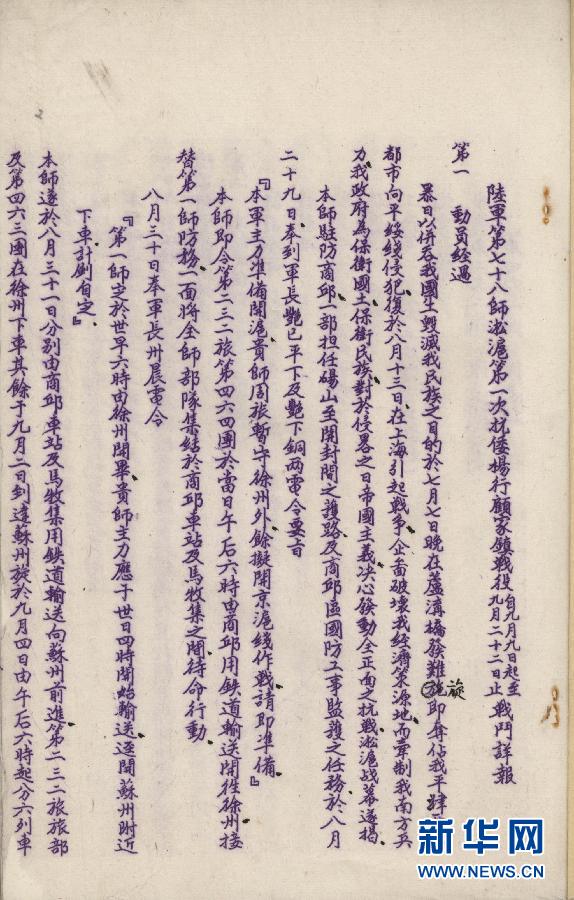 陸軍第七十八師淞滬第一次抗倭楊行顧家鎮戰役自九月九日起至九月二十二日止戰鬥詳報
第一　動員經過
暴日以併吞我國土毀滅我民族之目的於七月七日晚在蘆溝橋發難旋即奪佔我平
都市向平綏綫侵犯復於八月十三日在上海引起戰爭企畵破壞我經濟策源地而牽制我南方兵
力我政府為保衛國土保衛民族對於侵畧之日帝國主義決心發動全正面之抗戰淞滬战幕遂揭
本師駐防商邱一部担任碭山至開封間之護路及商邱區國防工事監護之任務於八月
二十九日奉到軍長艷已平下及艷下銅兩電令要旨
『本軍主力準備開滬貴師周旅暫守徐州外餘擬開京滬綫作戰請即準備』
本師即令第二三二旅第四六四團於當日午后六時由商邱用鉄道輸送開徃徐州接
替第一師防務一面將全師部隊集結於商邱車站及馬牧集之間待命行動
八月三十日奉軍長卅晨電令
『第一師定於世早六時由徐州開畢貴師主力應于世日四時開始輸送逕開蘇州附近
下車計劃自定』
本師遂於八月三十一日分別由商邱車站及馬牧集用鉄道輸送向蘇州前進第二三二旅旅部
及第四六三團在徐州下車其餘于九月二日到達蘇州旋於九月四日由午后六時起分六列車
新华网
WWW.NEWS.CN